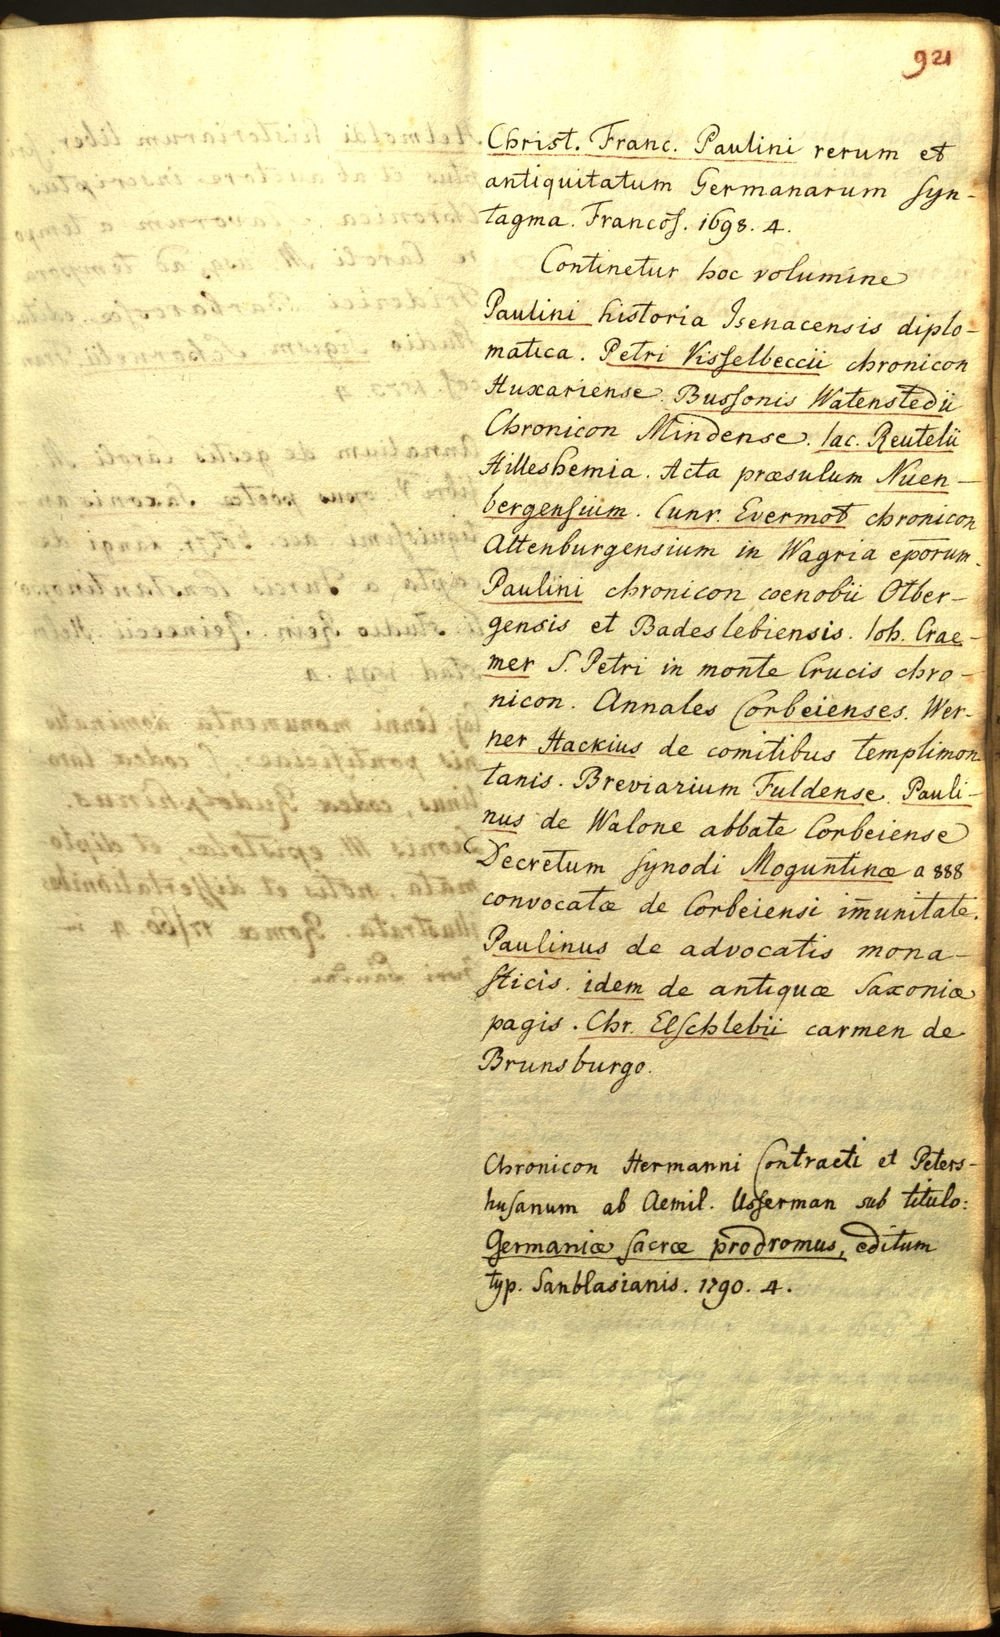 921
Christ. Franc. Paulini rerum et
antiquitatum Germanarum syn-
tagma. Francof. 1698. 4.
Continetur hoc volumine
Paulini historia Isenacensis diplo-
matica. Petri Visselbeccii chronicon
Huxariense. Bussonis Watenstedii
Chronicon Mindense. Iac. Reutelii
Hilleshemia. Acta præsulum Nuen-
bergensium. Cunr. Evermot chronicon
Altenburgensium in Wagria ep̄orum.
Paulini chronicon coenobii Otber-
gensis et Badeslebiensis. Ioh. Crae-
mer S. Petri in monte Crucis chro-
nicon. Annales Corbeienses. Wer-
ner Hackius de comitibus templimon
tanis. Breviarium Fuldense. Pauli-
nus de Walone abbate Corbeiense
Decretum synodi Moguntinæ a 888
convocatæ de Corbeiensi im̄unitate.
Paulinus de advocatis mona-
sticis. idem de antiquæ Saxoniæ
pagis. Chr. Elschlebii carmen de
Brunsburgo.
Chronicon Hermanni Contracti et Peters-
husanum ab Aemil. Usserman sub titulo:
Germaniæ sacræ prodromus, editum
typ. Sanblasianis. 1790. 4.